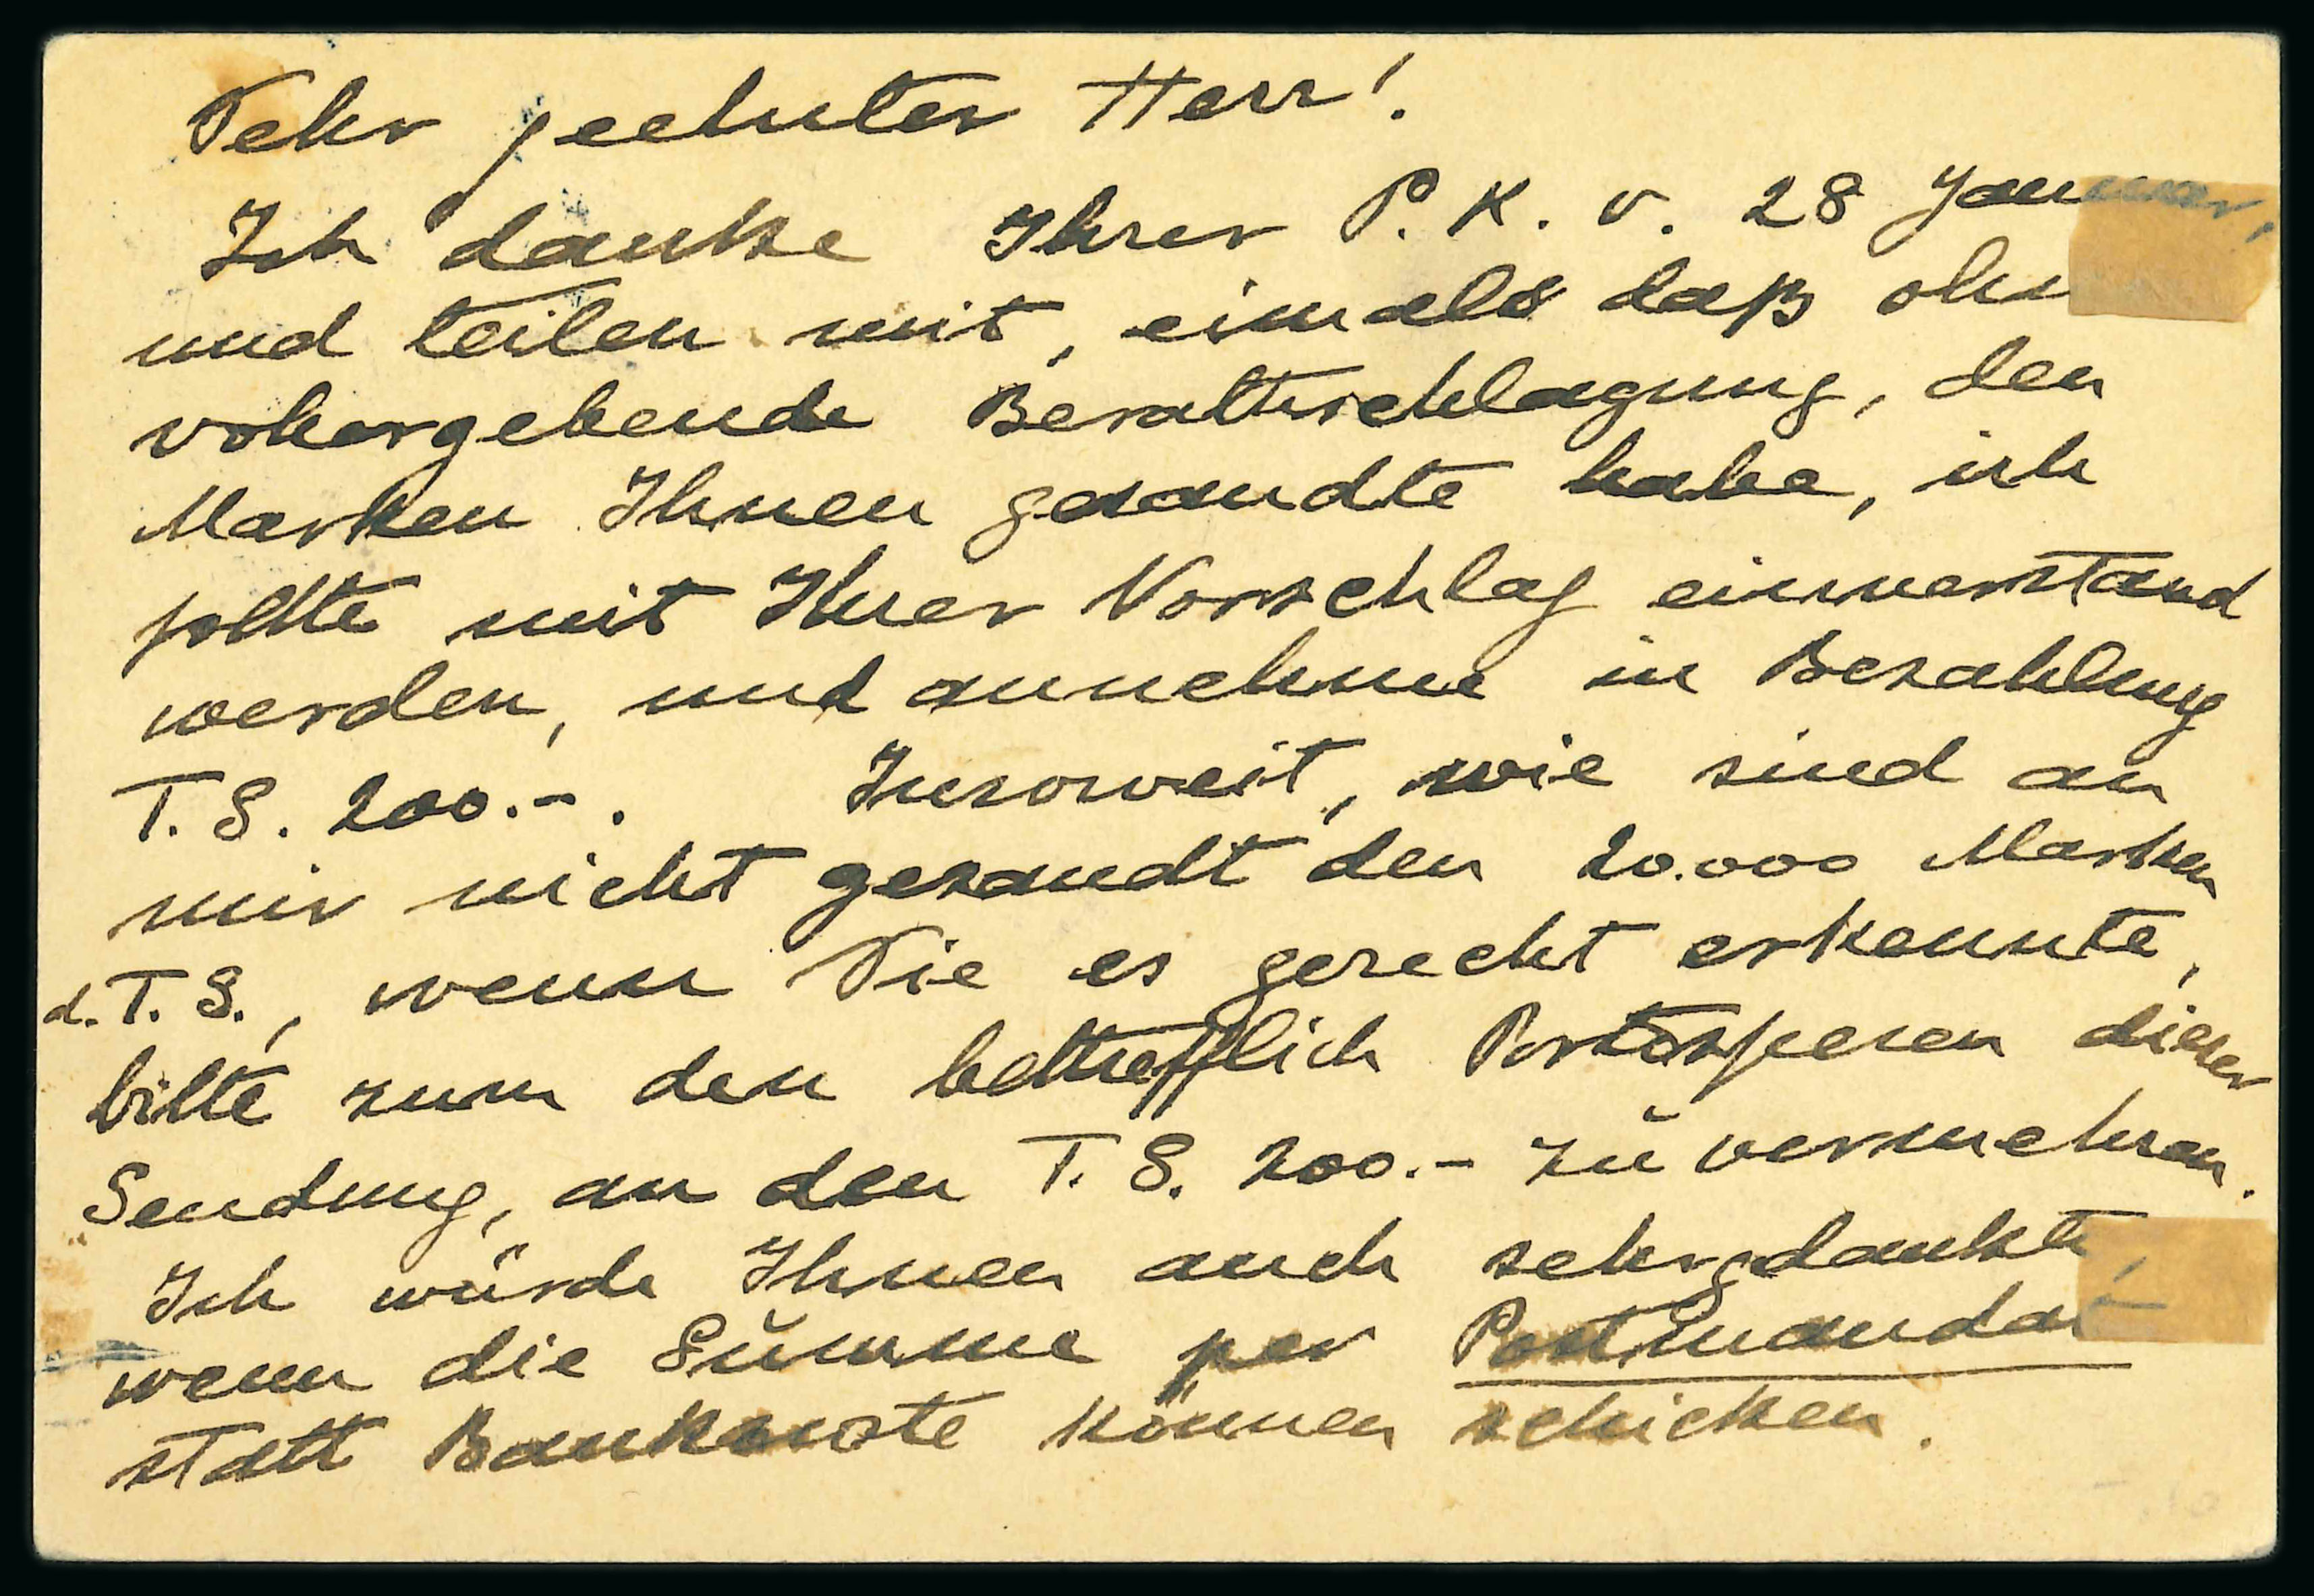 Sehr geehrter Herr!
Ich danke Ihrer P. K. v. 28 Januar,
und teilen mit, eimals daß ohn
vohergehende Beratthschlagung, den
Marken Ihnen gesandte habe, ich
sollte mit Ihrer Vorschlag einverstand
werden, und annehme in Bezahlung
T. S. 200.-. Insoweit, wie sind an
mir nicht gesandt den 20.000 Marken
d. T. S., wenn Sie es gerecht erkennte,
bitte zum den bettrefflich Portospesen dieser
Sendung, an den T. S. 200.- zŭ vermehren.
Ich würde Ihnen auch sehrgdankte,
wenn die Sŭmme per Postmandat
statt Banknote können schicken.